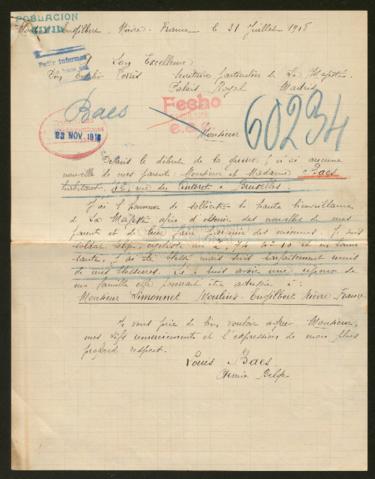 POBLACION
CIVIL
Engilbert, Nièvre, France le 31 Juillet 1918
Son Excellence
Don Emilio Torrès Secrétaire particulier de Sa Majesté
Palais Royal Madrid
Baes
Fecho
60234
23 NOV. 1918
Monsieur
Depuis le début de la guerre, je n'ai aucune
nouvelle de mes parents Monsieur et Madame Baes
habitant rue à Bruxelles
J'ai l'honneur de solliciter la haute bienveillance
de Sa Majesté afin d'obtenir des nouvelles de mes
parents et de leur faire parvenir des miennes. Je suis
soldat belge, et en bonne
santé, j'ai été blessé mais suis parfaitement remis
de mes blessures. Je suis une réponse de
ma famille elle pourrait être adressée à:
Monsieur Limonnet Moulins-Engilbert Nièvre France
Je vous prie de bien vouloir agréer Monsieur,
mes vifs remerciements et l'expression de mon plus
profond respect.
Louis Baes
Belge